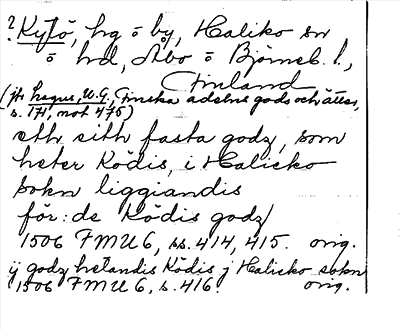 ? Kytö, hg o by, Haliko sn
o hd, Åbo o Björneb. l.,
Finland
(jfr Lagus, W.G., Finska adelns gods och ätter,
s. 171, not 475)
sith fasta godz, som
heter Ködis, i Halicko
sokn liggiandis
för: de Ködis godz
1506 FMU 6, ss. 414, 415. orig.
ÿ godz hetandis Ködis j Halicko sokn
1506 FMU 6, s. 416. orig.